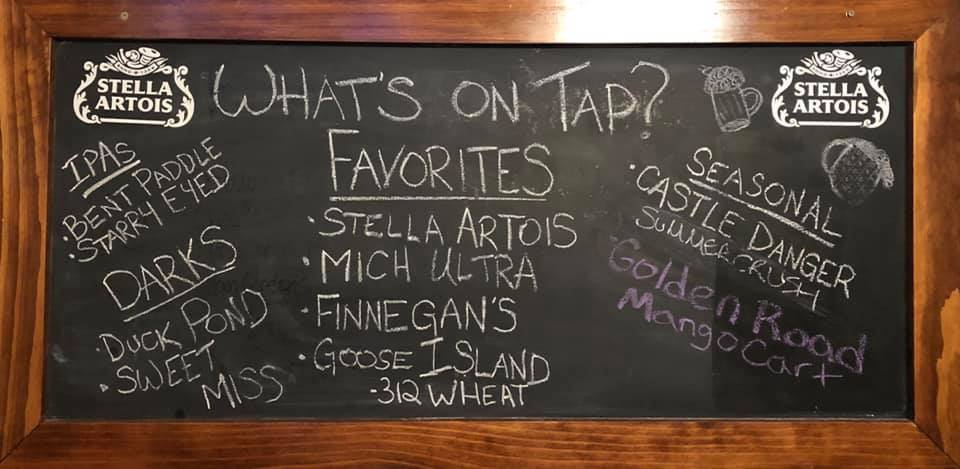 STELLA
ARTOIS
WHAT'S ON TAP?
STELLA
ARTOIS
IPAS
·BENT PADDLE
·STARRY EYED
DARKS
·DUCK POND
·SWEET
MISS
FAVORITES
·STELLA ARTOIS
·MICH ULTRA
·FINNEGAN'S
·GOOSE ISLAND
-312 WHEAT
SEASONAL
·CASTLE DANGER
SUMMER CRUSH
·Golden Road
Mango Cart